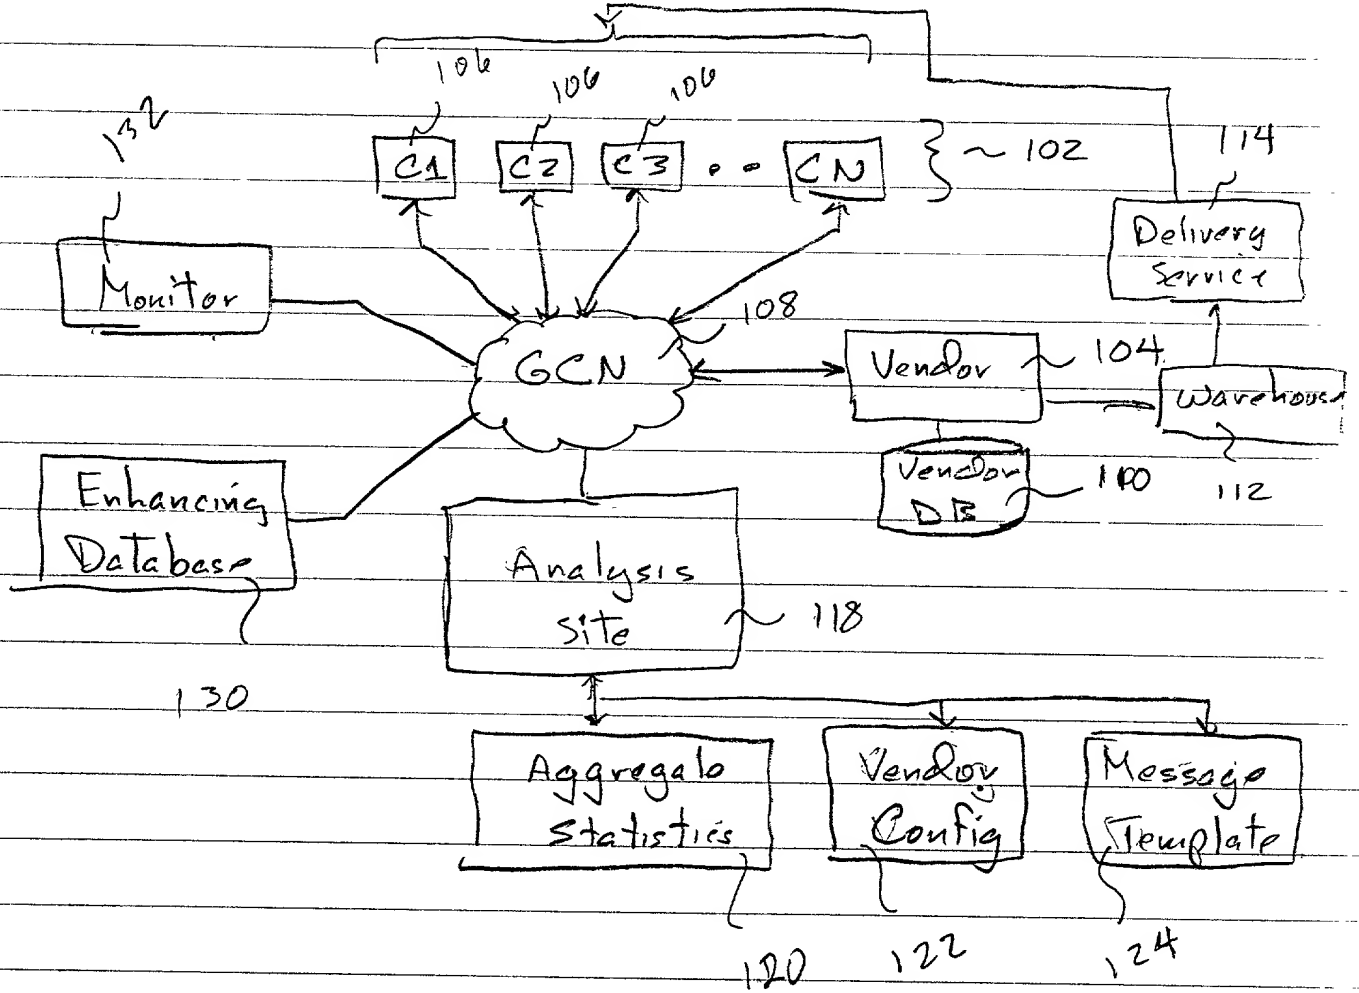 106 106 106
132
C1 C2 C3 .. CN ~ 102
114
Delivery
Service
Monitor
108
GCN
Vendor
104
Warehouse
Vendor
DB
110
112
Enhancing
Database
130
Analysis
Site
118
Aggregate
Statistics
Vendor
Config
Message
Template
120
122
124